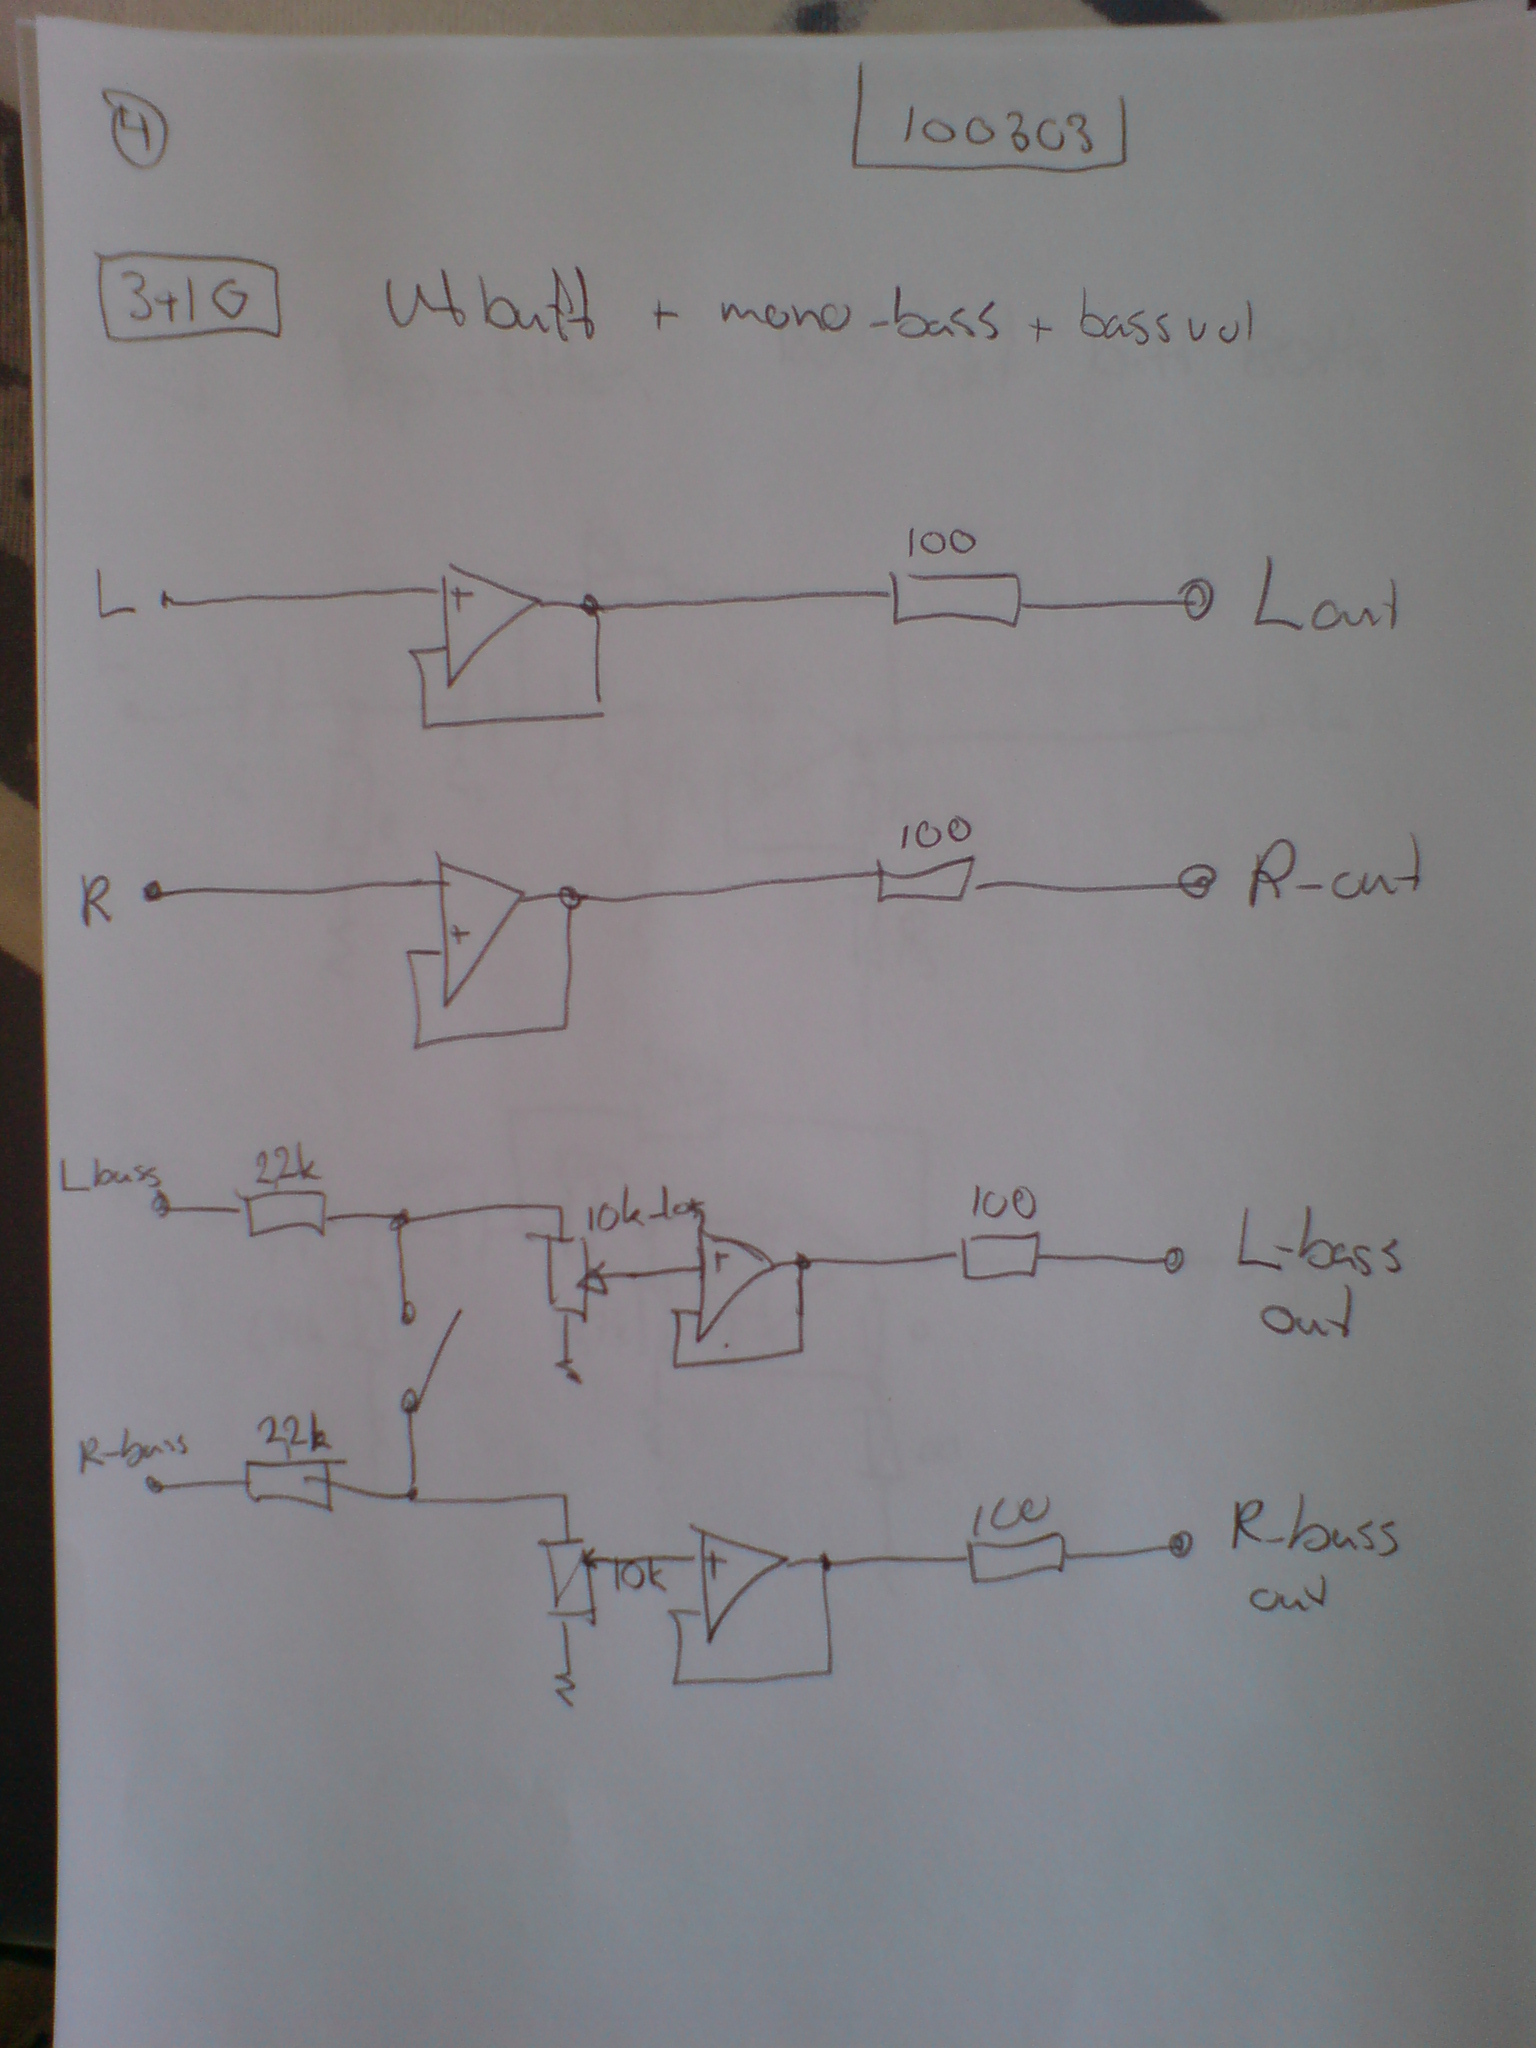 4
100303
3+1G Utbuff + mono-bass + bassvol
100
L + L out
100
R + R-out
L bass 22k 10k-log + 100 L-bass
out
R-bass 22k 10k + 100 R-bass
out